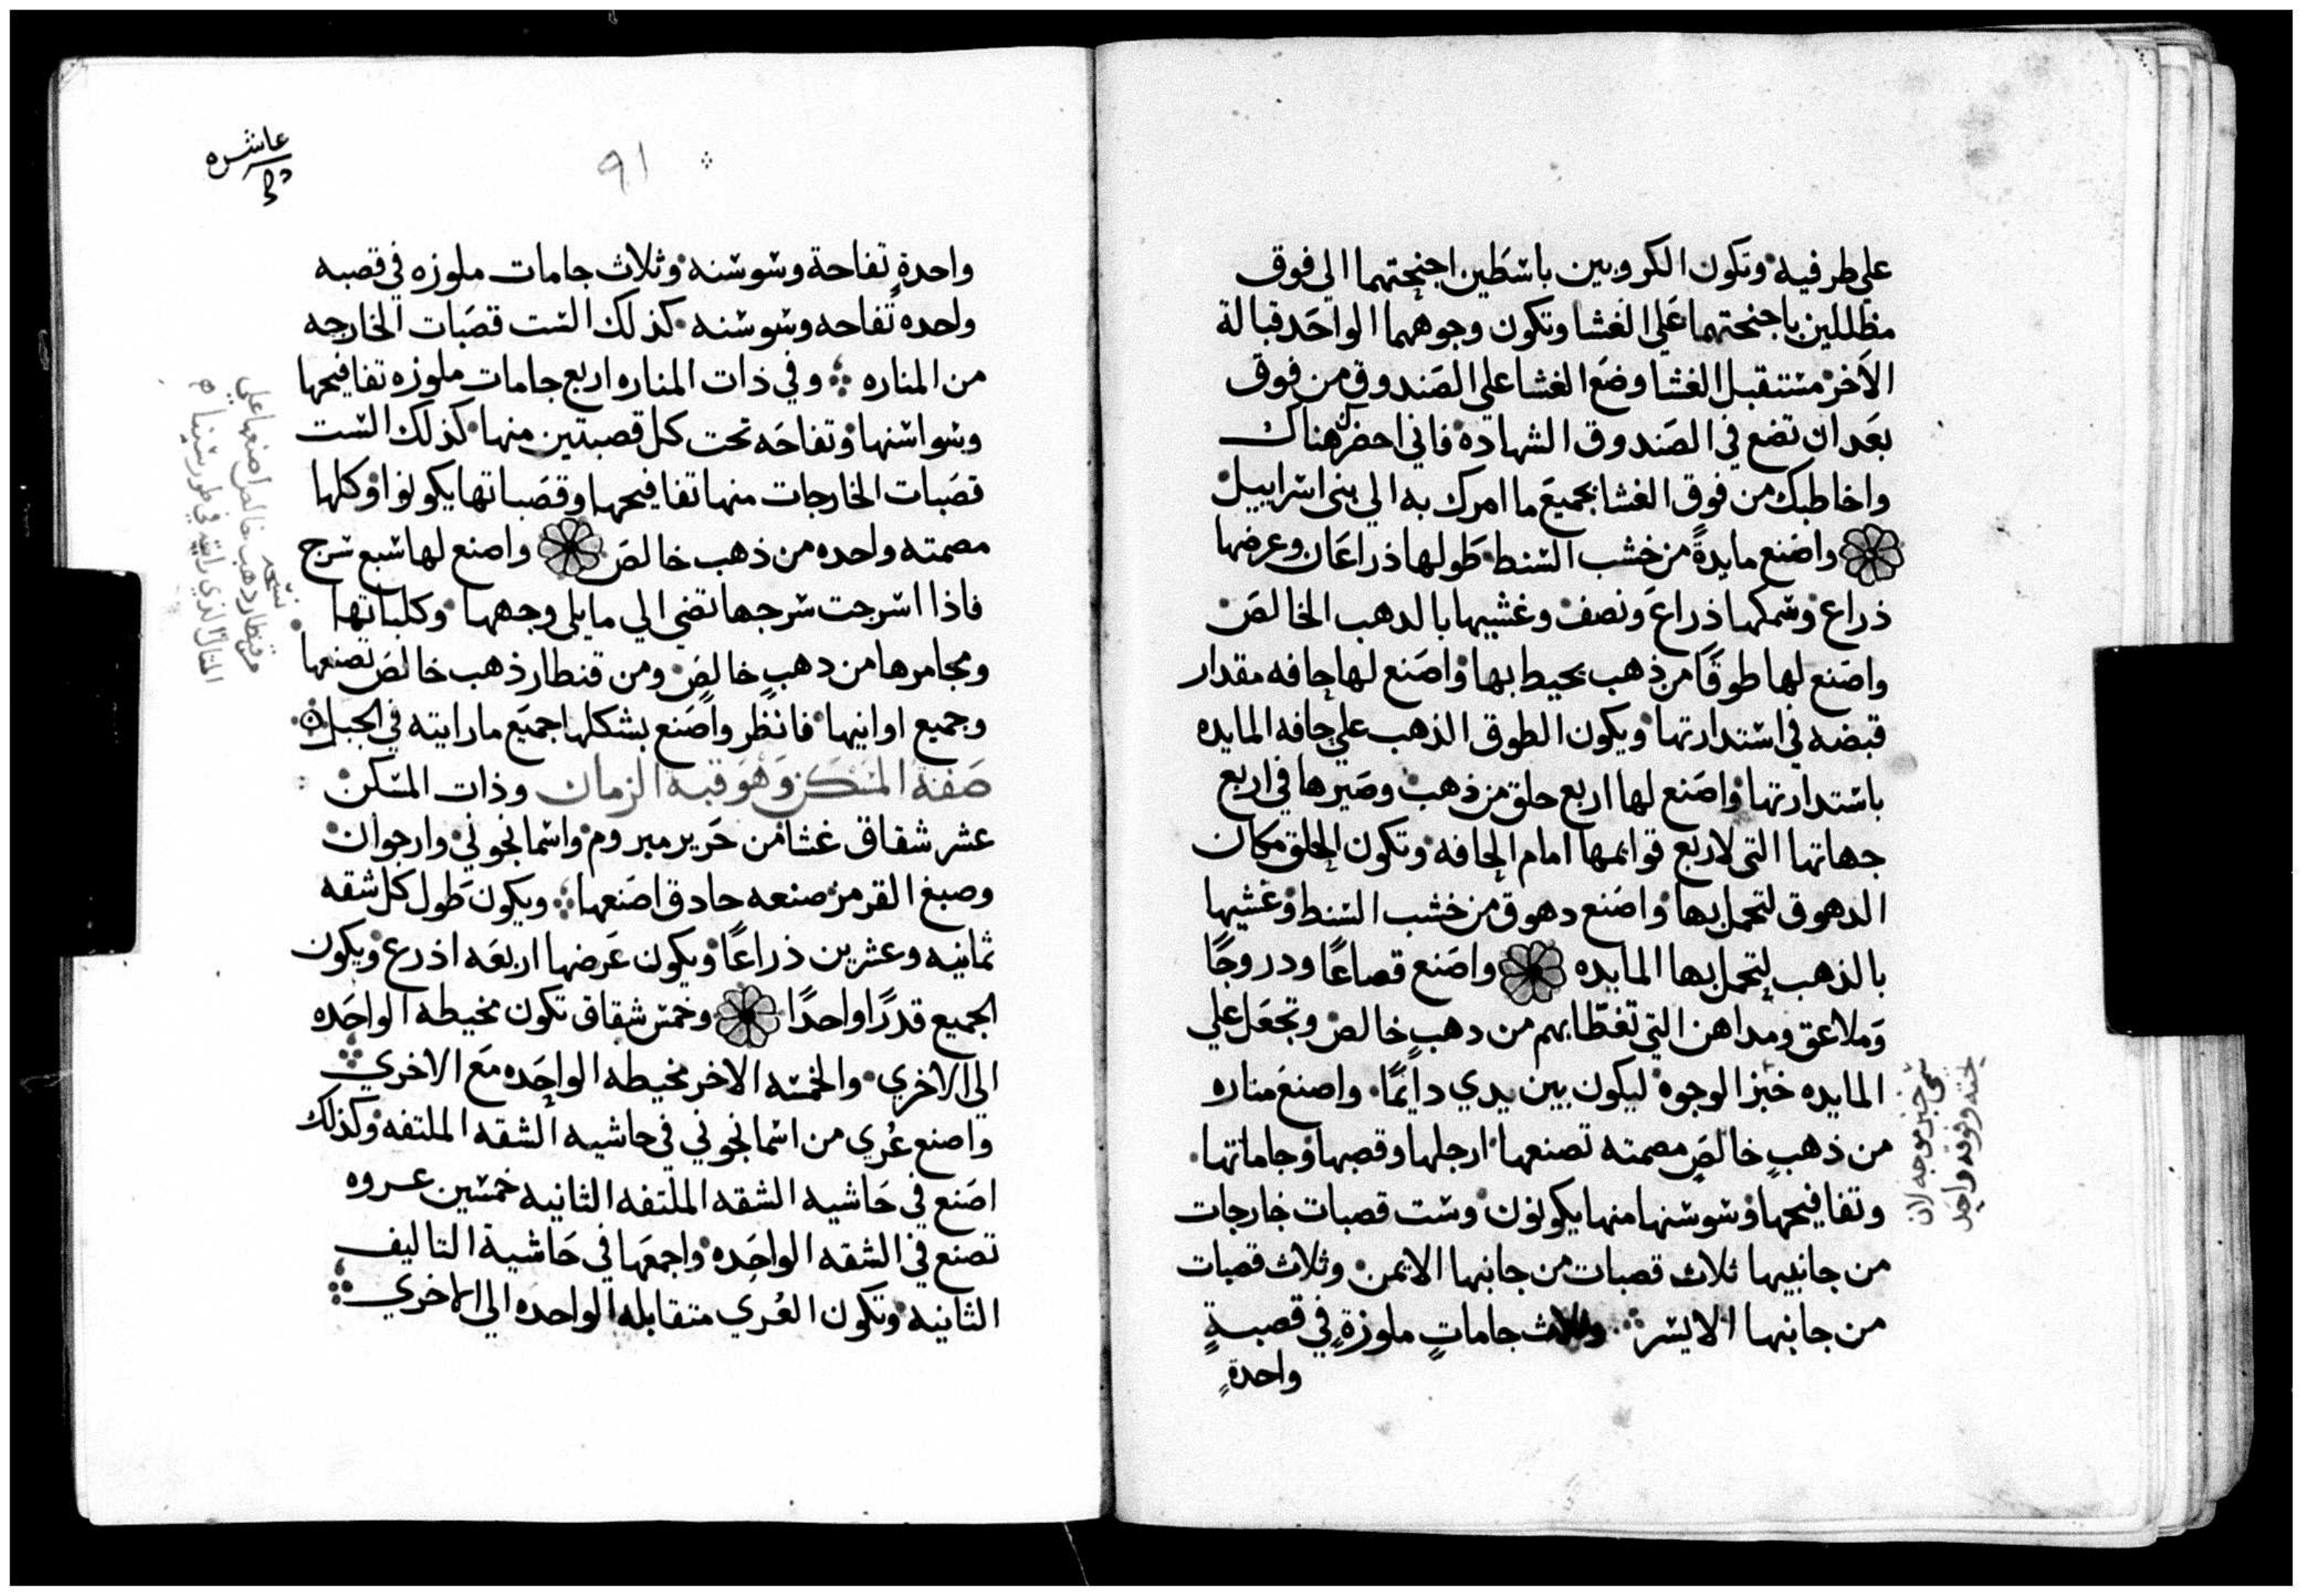 علي طرفيه وتكون الكروبين باسطين اجنحتهما الي فوق
مظللين باجنحتهما علي الغشا وتكون وجوههما الواحد قبالة
الاخر مستقبل الغشا وضع الغشا علي الصندوق من فوق
بعد ان تضع في الصندوق الشهادة فاني احضر هناك
واخاطبك من فوق الغشا بجميع ما امرك به الي بني اسراييل
واصنع مايدةً من خشب السنط طولها ذراعان وعرضها
ذراع وسمكها ذراع ونصف وغشيها بالدهب الخالص
واصنع لها طوقًا من ذهب يحيط بها واصنع لها حافه مقدار
قبضه في استدارتها ويكون الطوق الذهب علي حافه المايده
باستدارتها واصنع لها اربع حلق من ذهب وصيرها في اربع
جهاتها التي لاربع قوايمها امام الحافه وتكون الحلق مكان
الدهوق لتحمل بها واصنع دهوق من خشب السنط وغشيها
بالذهب لتحمل بها المايده واصنع قصاعًا ودروجًا
وملاعق ومداهن التي تغطا بهم من دهبٍ خالص وتجعل علي
المايده خبز الوجوه ليكون بين يدي دايمًا واصنع مناره
من ذهبٍ خالص مصمته تصنعها ارجلها وقصبها وجاماتها
وتفافيحها وسوسنها منها يكونون وست قصبات خارجات
من جانبيها ثلاث قصبات من جانبها الايمن وثلاث قصبات
من جانبها الايسر وثلاث جاماتٍ ملوزةٍ في قصبةٍ
واحدةٍ
عاشره
٩١
واحدةٍ تفاحة وسوسنه وثلاث جامات ملوزه في قصبه
واحده تفاحه وسوسنه كذلك الست قصبات الخارجه
من المناره وفي ذات المناره اربع جامات ملوزه تفافيحها
وسواسنها وتفاحه تحت كل قصبتين منها كذلك الست
قصبات الخارجات منها تفافيحها وقصباتها يكونوا وكلها
مصمته واحده من ذهب خالص واصنع لها سبع سرج
فاذا اسرجت سرجها تضي الي مايلي وجهها وكلباتها
ومجامرها من دهبٍ خالصٍ ومن قنطار ذهب خالص تصنعها
وجميع اوانيها فانظر واصنع بشكلها جميع ما رايته في الجبل
صفة المسكن وهو قبة الزمان وذات المسكن
عشر شقاق غشا من حرير مبروم واسمانجوني وارجوان
وصبغ القرمز صنعه حادق اصنعها ويكون طول كل شقه
ثمانيه وعشرين ذراعًا ويكون عرضها اربعه اذرع ويكون
الجميع قدرًا واحدًا وخمس شقاق تكون مخيطه الواحده
الي الاخري والخمسه الاخر مخيطه الواحده مع الاخري
واصنع عُري من اسمانجوني في حاشيه الشقه الملتفه وكذلك
اصنع في حاشيه الشقه الملتفه الثانيه خمسين عروه
تصنع في الشقه الواحده واجمعها في حاشية التاليف
الثانيه وتكون العُري متقابله الواحده الي الاخري
نسخه
من قنطار دهب خالص اصنعها علي
المثال الذي رايته في طور سينا